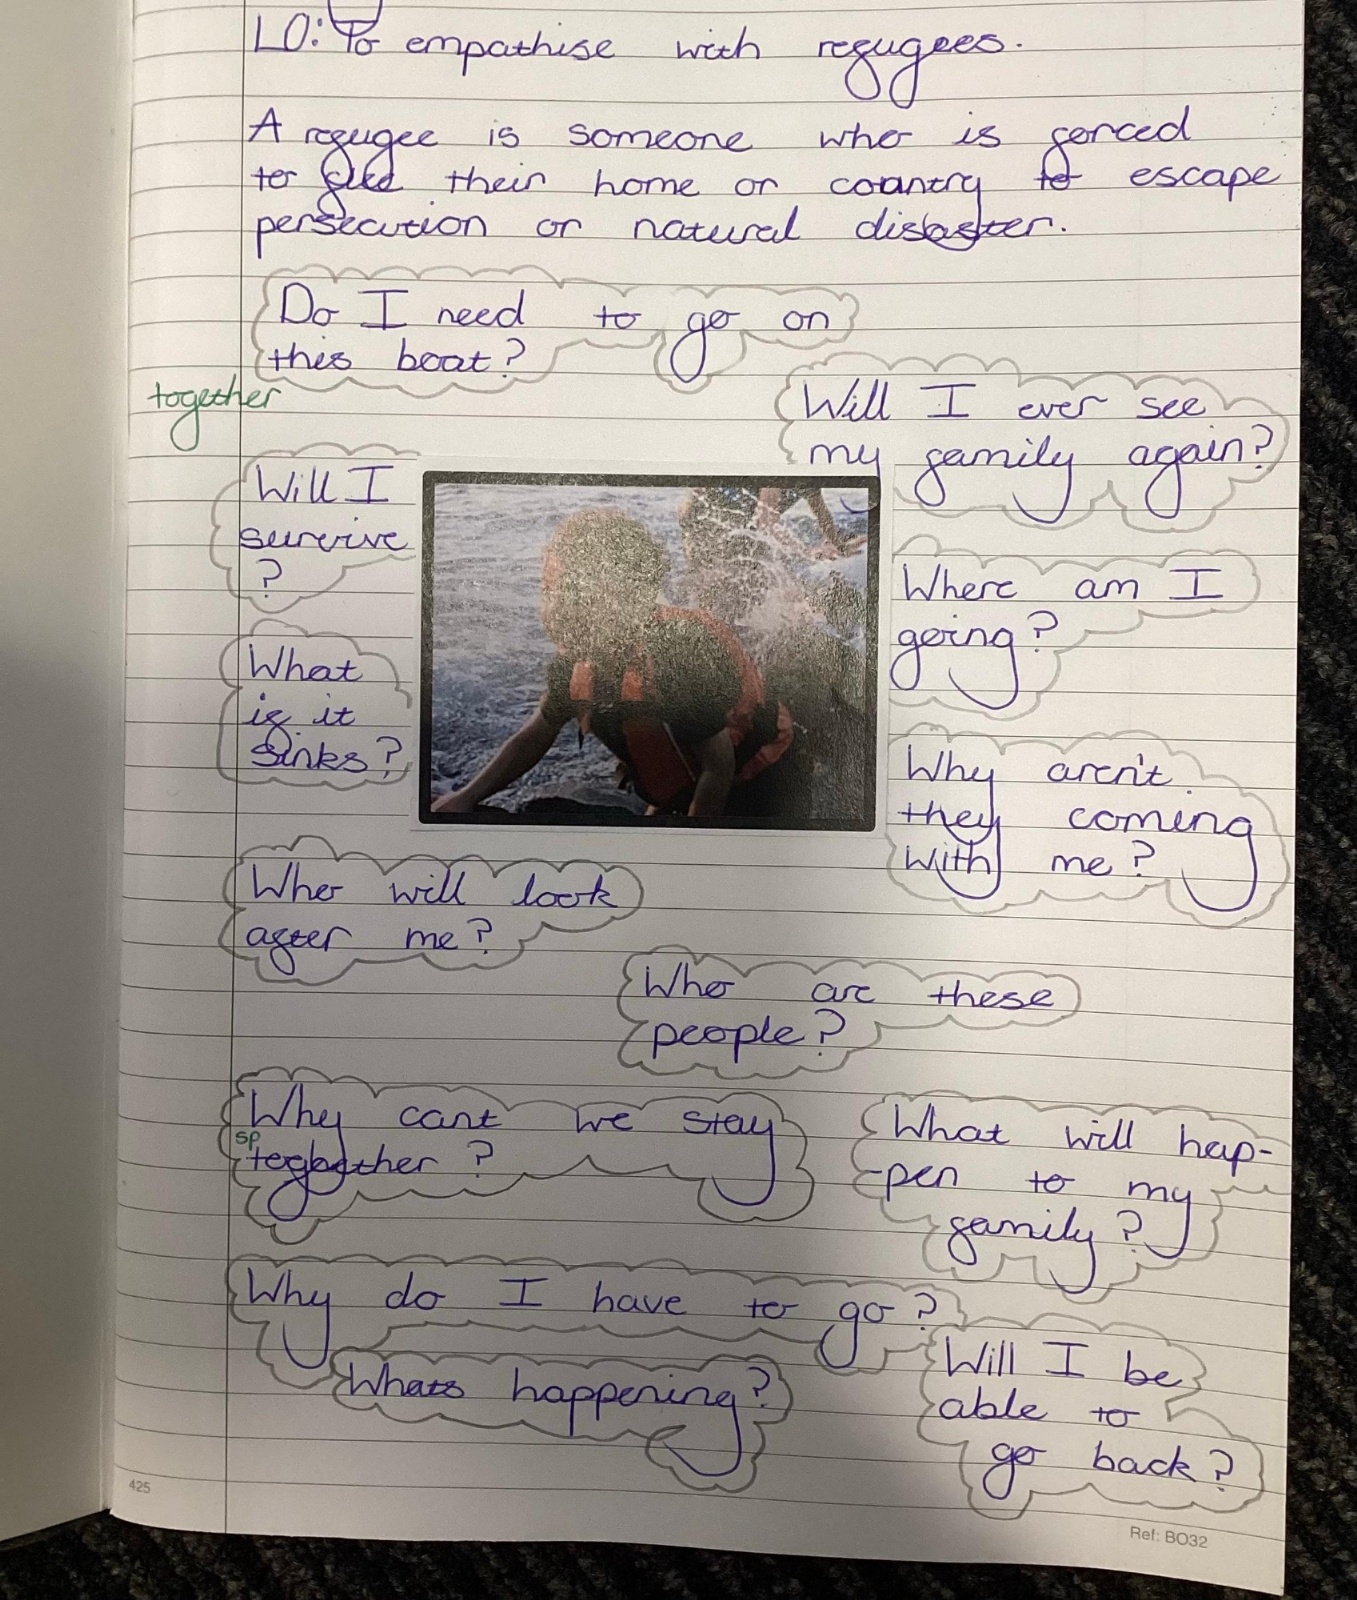 LO: To empathise with refugees.
A refugee is someone who is forced
to flee their home or country to escape
persecution or natural disaster.
Do I need to go on
this boat?
together
Will I ever see
my family again?
Will I
survive
?
Where am I
going?
What
if it
sinks?
Why aren't
they coming
with me?
Who will look
after me?
Who are these
people?
Why cant we stay
sp
together?
What will hap-
-pen to my
family?
Why do I have to go?
Whats happening?
Will I be
able to
go back?
425
Ref: BO32